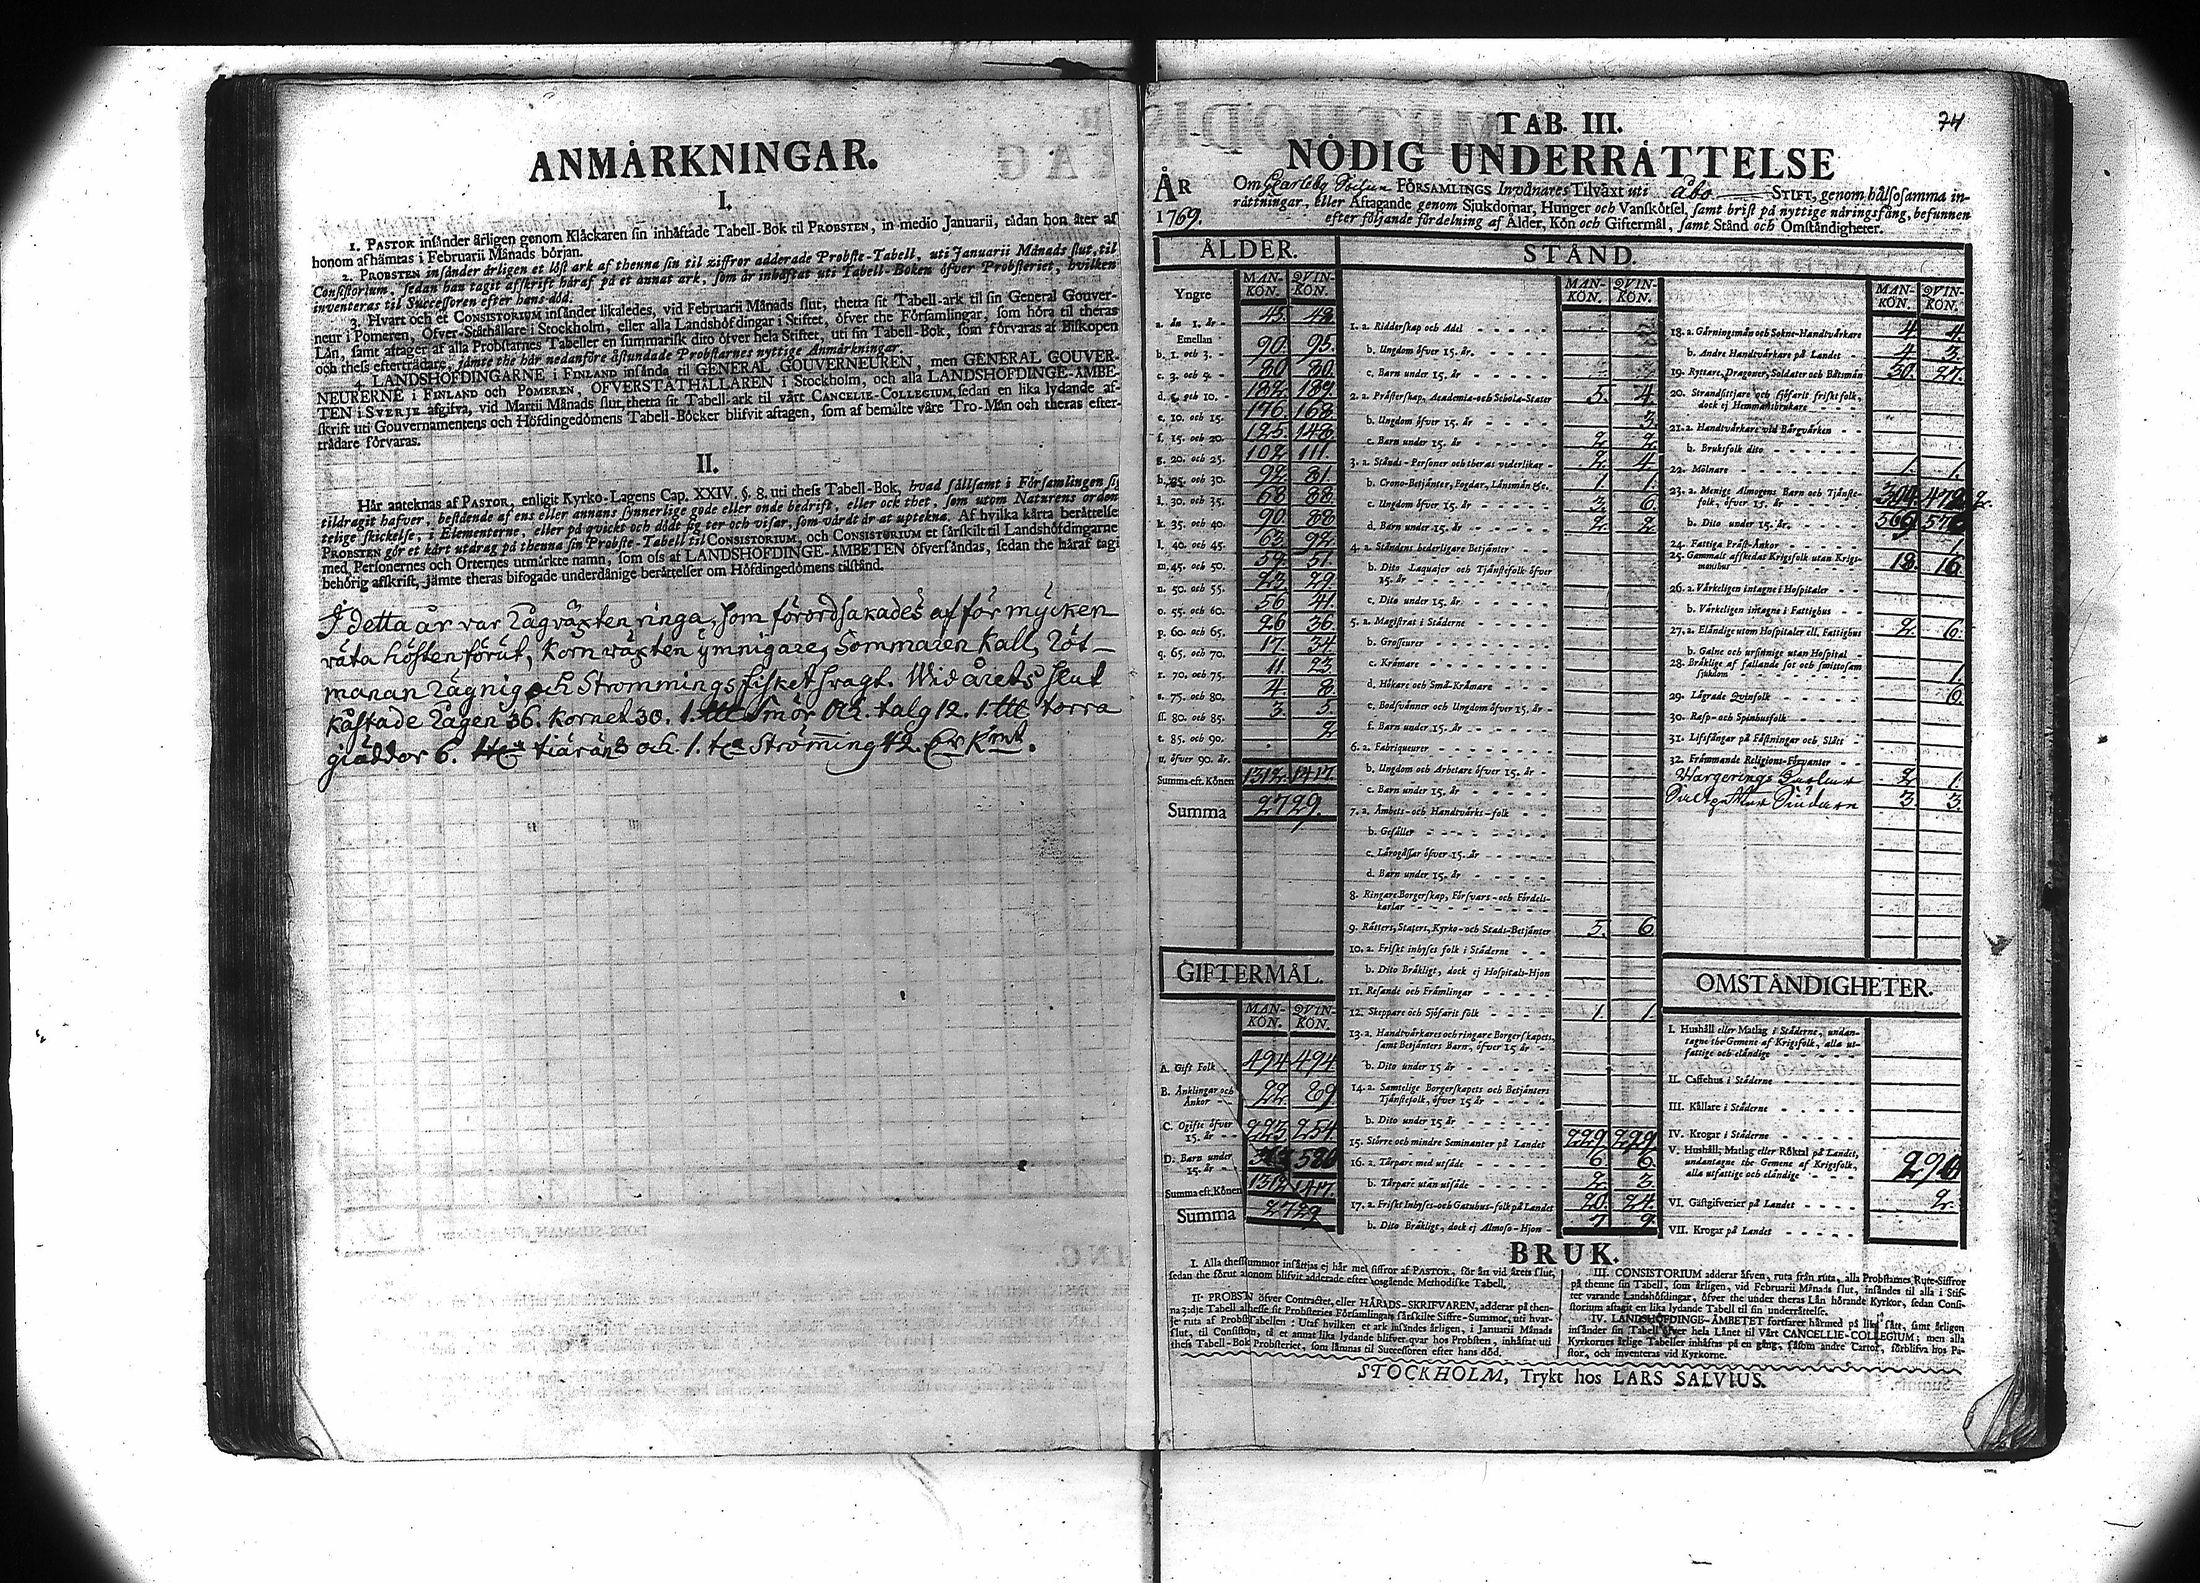 ANMÅRKNINGAR.
I.
1. PASTOR insånder årligen genom Klåckaren sin inhåftade Tabell-Bok til PROBSTEN, in medio Januarii, tådan hon åter af
honom afhåmtas i Februarii Månads början.
2. PROBSTEN insånder årligen et löst ark af thenna sin til ziffror adderade Probste-Tabell, uti Januarii Månads slut, til
Consistorium, sedan han tagit afskrift håraf på et annat ark, som år inhåftat uti Tabell-Boken öfver Probsteriet, hvilken
inventeras til Successoren efter hans död.
3. Hvart och et CONSISTORIUM insånder likaledes, vid Februarii Månads slut, thetta sit Tabell-ark til sin General Gouver-
neur i Pomeren, Öfver-Ståthållare i Stockholm, eller alla Landshöfdingar i Stiftet, öfver the Församlingar, som höra til theras
Lån, samt aftager af alla Probstarnes Tabeller en summarisk dito öfver hela Stiftet, uti sin Tabell-Bok, som förvaras af Biskopen
och thess efterträdare, jåmte the hår nedanföre åstundade Probstarnes nyttige Anmårkningar.
4. LANDSHÖFDINGARNE i FINLAND insånda til GENERAL GOUVERNEUREN, men GENERAL GOUVER-
NEURERNE i FINLAND och POMEREN, ÖFVERSTÅTHÅLLAREN i Stockholm, och alla LANDSHÖFDINGE-ÅMBE-
TEN i SVERJE afgifva, vid Martii Månads slut, thetta sit Tabell-ark til vårt CANCELIE-COLLEGIUM, sedan en lika lydande af-
skrift uti Gouvernamentens och Höfdingedömens Tabell-Böcker blifvit aftagen, som af bemålte våre Tro-Mån och theras efter-
trådare förvaras.
II.
Hår anteknas af PASTOR, enligit Kyrko-Lagens Cap. XXIV. §. 8. uti thess Tabell-Bok, hvad sållsamt i Församlingen sig
tildragit hafver, bestående af ens eller annans synnerlige gode eller onde bedrift, eller ock thet, som utom Naturens orden
telige skickelse, i Elementerne, eller på qvickt och dödt sig ter och visar, som vårdt år at uptekna. Af hvilka kårta beråttelse
PROBSTEN gör et kårt utdrag på thenna sin Probste-Tabell til CONSISTORIUM, och CONSISTORIUM et sårskilt til Landshöfdingarne
med Personernes och Orternes utmårkte namn, som oss af LANDSHÖFDINGE-ÅMBETEN öfversåndas, sedan the håraf tagi
behörig afskrift, jåmte theras bifogade underdånige beråttelser om Höfdingedömens tilstånd.
I detta år var Rågväxten ringa, som förordsakades af för mycken
väta hösten förut, Korn växten ymnigare, Sommaren Kall, Röt-
månan Rägnig och Strömmings fisket svagt. Wid årets slut
kåstade Rågen 36. Kornet 30. 1. smör och talg 12. 1. torra
giäddor 6. tiäran 8 och 1. Strömming 42.
TAB. III.
74
NÖDIG UNDERRÅTTELSE
ÅR
1769.
Om FÖRSAMLINGS Invånares Tilvåxt uti Åbo STIFT, genom hålsosamma in-
råttningar, eller Aftagande genom Sjukdomar, Hunger och Vanskötsel, samt brist på nyttige nåringsfång, befunnen
efter följande fördelning af Ålder, Kön och Giftermål, samt Stånd och Omståndigheter.
ÅLDER.
MAN-KÖN. QVIN-KÖN.
Yngre
a. ån 1. år - 45. 48
Emellan
b. 1. och 3. - 90. 95.
c. 3. och 5. - 80 80.
d. 5. och 10. - 182. 189.
e. 10. och 15. 176. 168
f. 15. och 20. 125. 148.
g. 20. och 25. 102. 111.
h. 25. och 30 92. 81.
i. 30. och 35. 68 88.
k. 35. och 40. 90. 88
l. 40. och 45. 63. 92.
m. 45. och 50. 59. 51.
n. 50. och 55. 23. 29.
o. 55. och 60. 56 41.
p. 60. och 65. 26 36.
q. 65. och 70. 17. 34.
r. 70. och 75. 11 23
s. 75. och 80. 4. 8.
ss. 80. och 85. 3. 5.
t. 85. och 90. 2
u. öfver 90. år.
Summa eft. Könen 1312. 1417.
Summa 2729.
GIFTERMÅL.
MAN-KÖN. QVIN-KÖN.
A. Gift Folk 494 494
B. Ånklingar och Ånkor - - 22. 89.
C. Ogifte öfver 15. år - - 223. 254.
D. Barn under 15. år - 580
Summa eft. Könen 1312 1417.
Summa 2729
STÅND.
MAN-KÖN. QVIN-KÖN.
1. a. Ridderskap och Adel
b. Ungdom öfver 15. år.
c. Barn under 15. år
2. a. Pråsterskap, Academiæ- och Schola-Stater 5. 4.
b. Ungdom öfver 15. år 3.
c. Barn under 15. år 2. 2.
3. a. Stånds-Personer och theras vederlikar - 2. 4.
b. Crono-Betjånter, Fogdar, Lånsmån &c. 1 1.
c. Ungdom öfver 15. år 3. 6.
d. Barn under 15. år 2. 2
4. a. Ståndens hederligare Betjånter
b. Dito Laquajer och Tjånstefolk öfver
15. år
c. Dito under 15. år
5. a. Magistrat i Ståderne
b. Grosseurer
c. Kråmare
d. Hökare och Små-Kråmare
e. Bodsvånner och Ungdom öfver 15. år -
f. Barn under 15. år
6. a. Fabriqueurer
b. Ungdom och Arbetare öfver 15. år -
c. Barn under 15. år
7. a. Åmbets- och Handtvårks-folk
b. Gesåller
c. Lårogåssar öfver 15. år
d. Barn under 15. år
8. Ringare Borgerskap, Försvars- och Fördels-
karlar
9. Råtters, Staters, Kyrko- och Stads-Betjånter 5. 6
10. a. Friskt inhyses folk i Ståderne
b. Dito Bråkligt, dock ej Hospitals-Hjon
11. Resande och Fråmlingar
12. Skeppare och Sjöfarit folk 1. 1.
13. a. Handtvårkares och ringare Borgerskapets,
samt Betjånters Barn, öfver 15 år
b. Dito under 15 år
14. a. Samtelige Borgerskapets och Betjånters
Tjånstefolk, öfver 15 år
b. Dito under 15 år
15. Större och mindre Seminanter på Landet 229. 229.
16. a. Torpare med utsåde 6. 6.
b. Torpare utan utsåde 2. 3.
17. a. Friskt Inhyses- och Gatuhus-folk på Landet 20. 24.
b. Dito Bråkligt, dock ej Almoso-Hjon - 7 9.
MAN-KÖN. QVIN-KÖN.
18. a. Gårningsmån och Sokne-Handtvårkare 4 4.
b. Andre Handtvårkare på Landet 4 3.
19. Ryttare, Dragoner, Soldater och Båtsmån 30. 27.
20. Strandsittjare och sjöfarit friskt folk,
dock ej Hemmansbrukare
21. a. Handtvårkare vid Bårgvårken
b. Bruksfolk dito
22. Mölnare 1. 1.
23. a. Menige Almogens Barn och Tjånste-
folk, öfver 15. år
b. Dito under 15. år.
24. Fattiga Pråst-Ånkor 1
25. Gammalt afskedat Krigsfolk utan Krigs-
manshus 18. 16
26. a. Vårkeligen intagne i Hospitaler
b. Vårkeligen intagne i Fattighus
27. a. Elåndige utom Hospitaler ell. Fattighus 2. 6.
b. Galne och ursinnige utan Hospital
28. Bråklige af fallande sot och smittosam
sjukdom 1.
29. Lågrade Qvinfolk 6.
30. Rasp- och Spinhusfolk
31. Lifsfångar på Fåstningar och Slått
32. Fråmmande Religions-Förvanter
2. 1.
3. 3.
OMSTÅNDIGHETER.
I. Hushåll eller Matlag i Ståderne, undan-
tagne the Gemene af Krigsfolk, alla ut-
fattige och elåndige
II. Caffehus i Ståderne
III. Kållare i Ståderne
IV. Krogar i Ståderne
V. Hushåll, Matlag eller Röktal på Landet,
undantagne the Gemene af Krigsfolk,
alla utfattige och elåndige 296
VI. Gåstgifverier på Landet 2.
VII. Krogar på Landet
BRUK.
I. Alla thess summor insåttjas ej hår med siffror af PASTOR, för ån vid årets slut,
sedan the förut blifvit adderade efter Methodiske Tabell.
II. PROBSTEN öfver Contractet, eller HÅRADS-SKRIFVAREN, adderar på then-
na 3:dje Tabell alhesse sit Probsteries Församlingars sårskilte Siffre-Summor, uti hvar-
je ruta af Probste-Tabellen: Utaf hvilken et ark insåndes årligen, i Januarii Månads
slut, til Consistorium, tå et annat lika lydande blifver qvar hos Probsten, inhåftat uti
thess Tabell-Bok Probsteriet, som låmnas til Successoren efter hans död.
III. CONSISTORIUM adderar åfven, ruta från ruta, alla Probstarnes Rute-Siffror
på thenne sin Tabell, som årligen, vid Februarii Månads slut, insåndes til alla i Stif-
tet varande Landshöfdingar, öfver the under theras Lån hörande Kyrkor, sedan Consi-
storium aftagit en lika lydande Tabell til sin underråttelse.
IV. LANDSHÖFDINGE-ÅMBETET fortfarer hårmed på lika sått, samt årligen
insånder sin Tabell öfver hela Lånet til Vårt CANCELLIE-COLLEGIUM; men alla
Kyrkornes årlige Tabeller inhåftas på en gång, såsom andre Cartor, förblifva hos Pa-
stor, och inventeras vid Kyrkorne.
STOCKHOLM, Trykt hos LARS SALVIUS.